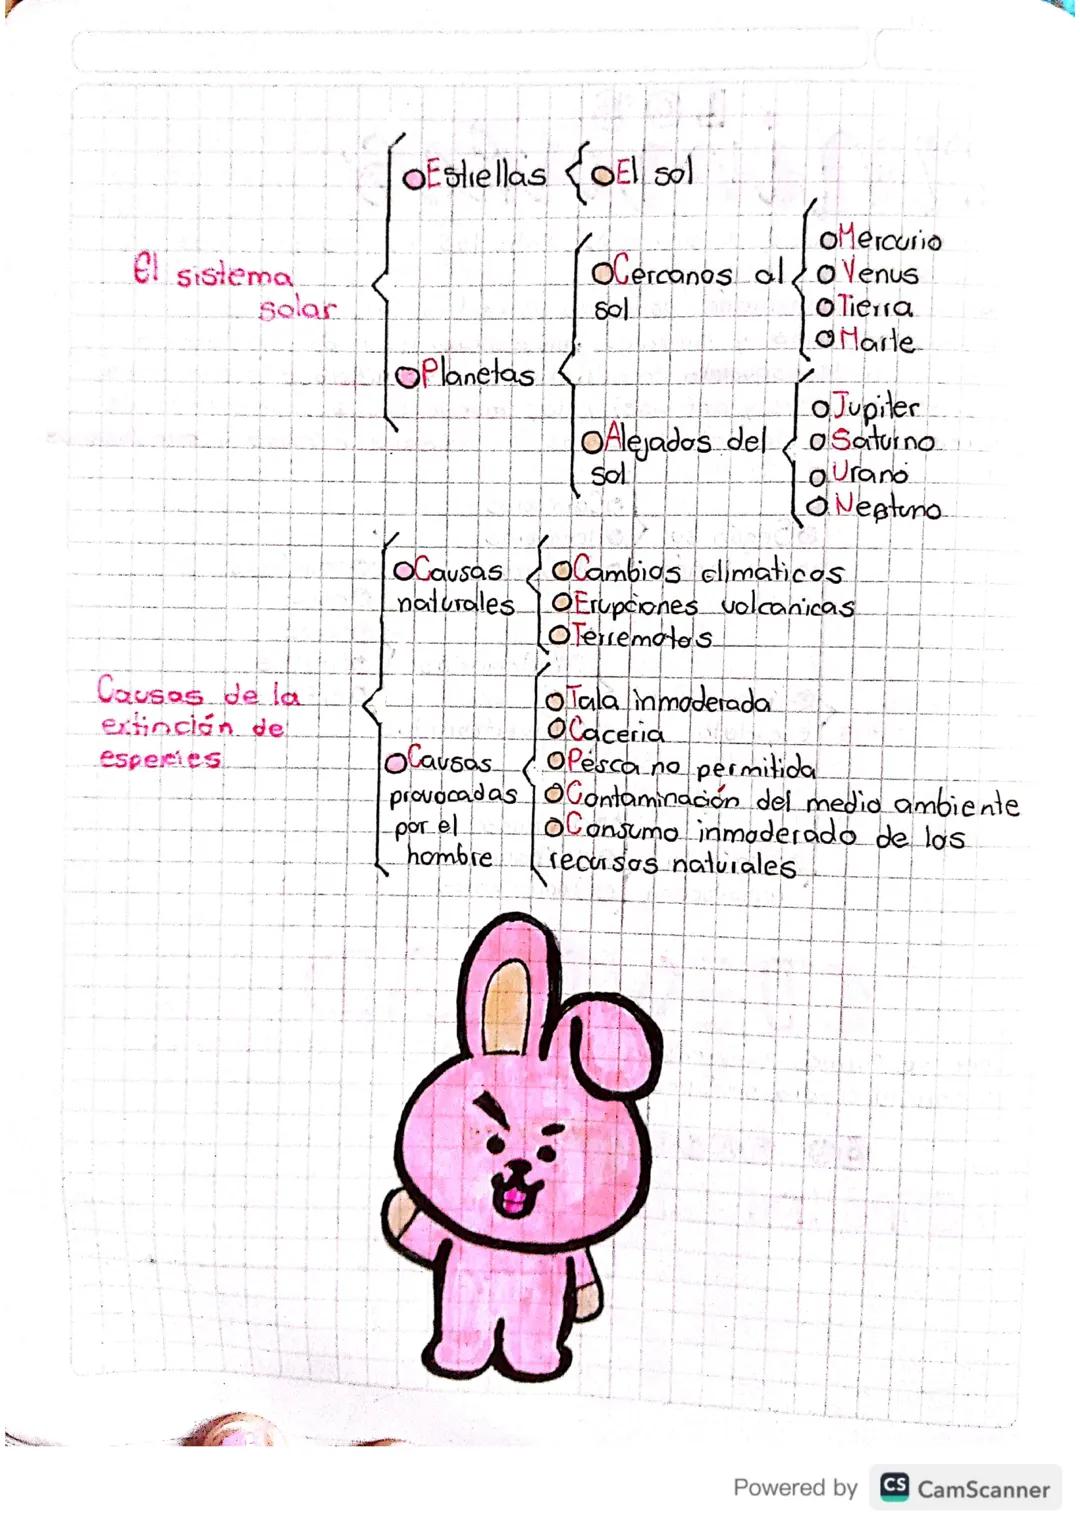 Estrellas
El sol
El sistema
solar
Planetas
Cercanos al
sol
Mercurio
Venus
Tierra
Marte
Alejados del
sol
Jupiter
Saturno
Urano
Neptuno
Causas de la
extinción de
especies
Causas
naturales
Cambios climaticos
Erupciones volcanicas
Terremotos
Causas
provocadas
por el
hombre
Tala inmoderada
Caceria
Pesca no permitida
Contaminación del medio ambiente
Consumo inmoderado de los
recursos naturales
Powered by CS CamScanner